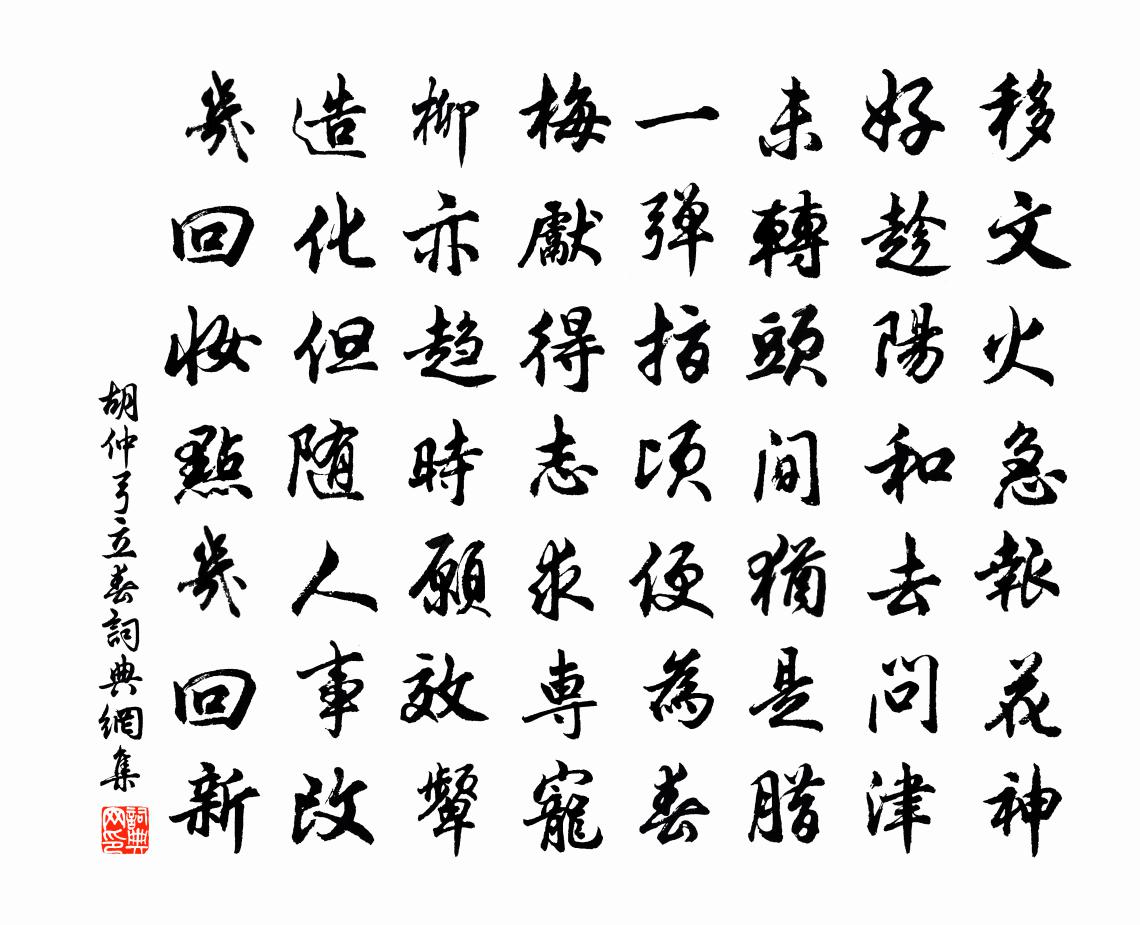 移文火急報花神
好趁陽和去問津
未轉頭間猶是腊
一弹指頃便為春
梅獻得志求專寵
柳亦趋時願效顰
造化但随人事改
幾回妝點幾回新
胡仲弓立春詞典網集
詞典网印